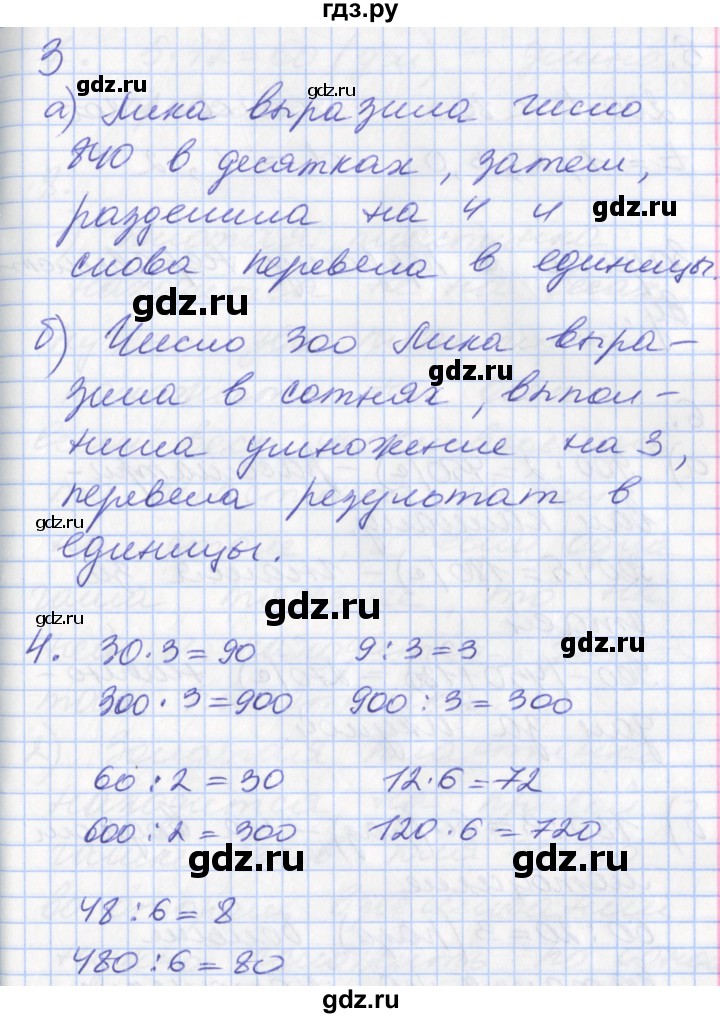 гдз.ру
3
а) Лика выразила число
840 в десятках, затем,
разделила на 4 и
снова перевела в единицы.
б) Число 300 Лика выра-
зила в сотнях, выпол-
нила умножение на 3,
перевела результат в
единицы.
4. 30·3=90 9:3=3
300·3=900 900:3=300
60:2=30 12·6=72
600:2=300 120·6=720
48:6=8
480:6=80
gdz.ru
gdz.ru
gdz.ru
gdz.ru
gdz.ru
gdz.ru
gdz.ru
gdz.ru
gdz.ru
gdz.ru
gdz.ru
gdz.ru